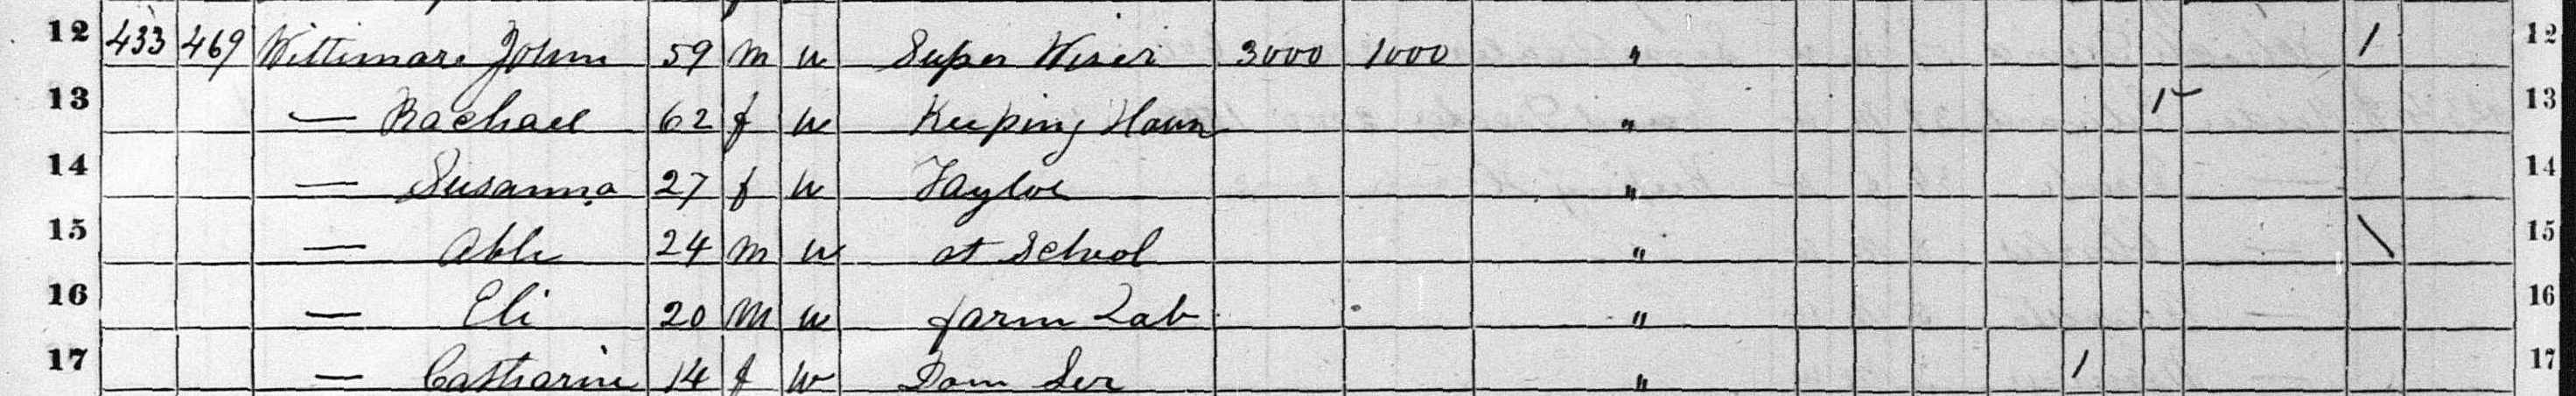 12 433 469 Wittimare John 59 m w Super Wiser 3000 1000 " / 12
13 — Rachael 62 f w Keeping Hous " 1 13
14 — Susanna 27 f w Taylor " 14
15 — Able 24 m w at School " \ 15
16 — Eli 20 M w farm Lab " 16
17 — Catharine 14 f w Dom Ser " 1 17